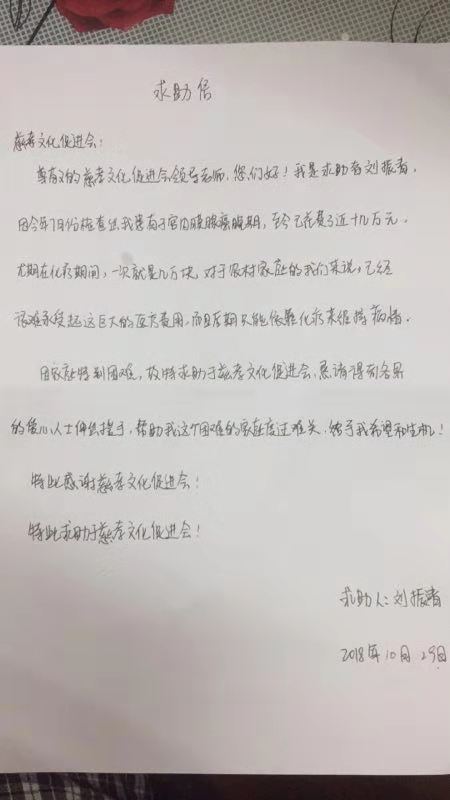 求助信
慈孝文化促进会：
尊敬的慈孝文化促进会领导老师，您们好！我是求助者刘振
因今年7月份检查出我患有子宫内膜腺癌晚期，至今已花费了近十几万元，
尤期在化疗期间，一次就是几万块，对于农村家庭的我们来说，已经
很难承受起这巨大的医疗费用，而且后期只能依靠化疗来维持病情。
因家庭特别困难，故特求助于慈孝文化促进会，恳请得到各界
的爱心人士伸出援手，帮助我这个困难的家庭度过难关，给予我希望和生机！
特此感谢慈孝文化促进会！
特此求助于慈孝文化促进会！
求助人：刘振
2018年10月29日